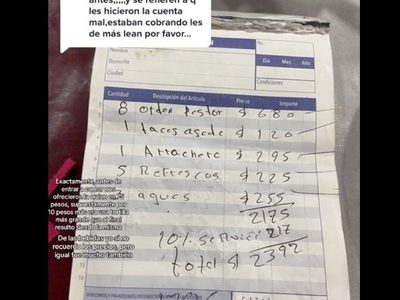 antes,,,,,y se refieren a q
les hicieron la cuenta
mal,estaban cobrando les
de más lean por favor...
Nombre
Domicilio
Ciudad
Día Mes Año
Condiciones
Cantidad Descripción del Artículo Precio Importe
8 orden Pastor $ 680
1 tacos $ 120
1 Arrachera $ 295
5 Refrescos $ 225
aguas $ 255
2175
10% servicio 217
total $ 2392
Exactamente, antes de
entrar a comer nos
ofrecieron la orden en 75
pesos, supuestamente por
10 pesos más era una tortilla
más grande que al final
resultó siendo la misma
De las bebidas yo si no
recuerdo los precios, pero
igual fue mucho también